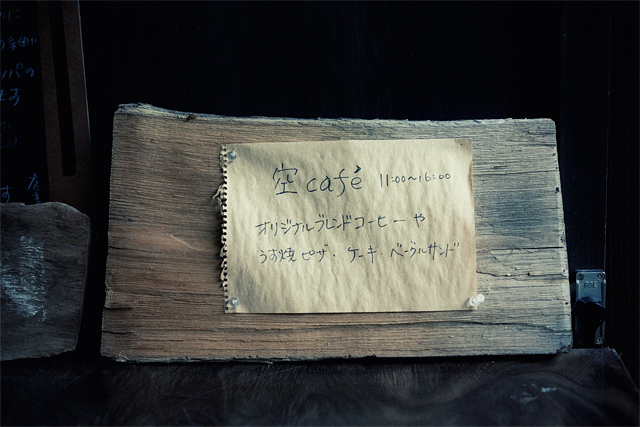 空 café 11:00~16:00
オリジナルブレンドコーヒーや
うす焼ピザ・ケーキ・ベーグルサンド